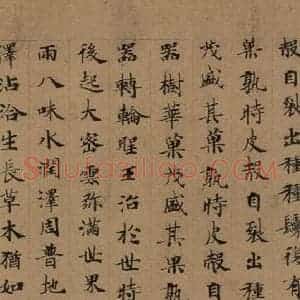 㲉自裂出種種鬘復有
菓孰時皮㲉自裂出種
茂盛其菓孰時皮㲉自
器樹華菓茂盛其果孰
器轉輪聖王治於世時
後起大密雲弥滿世界
雨八味水潤澤周普地
澤沾洽生長草木猶如